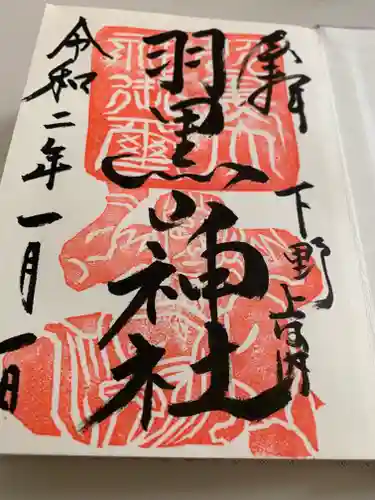 奉拝
下野上河内
羽黒山神社
令和二年一月一日